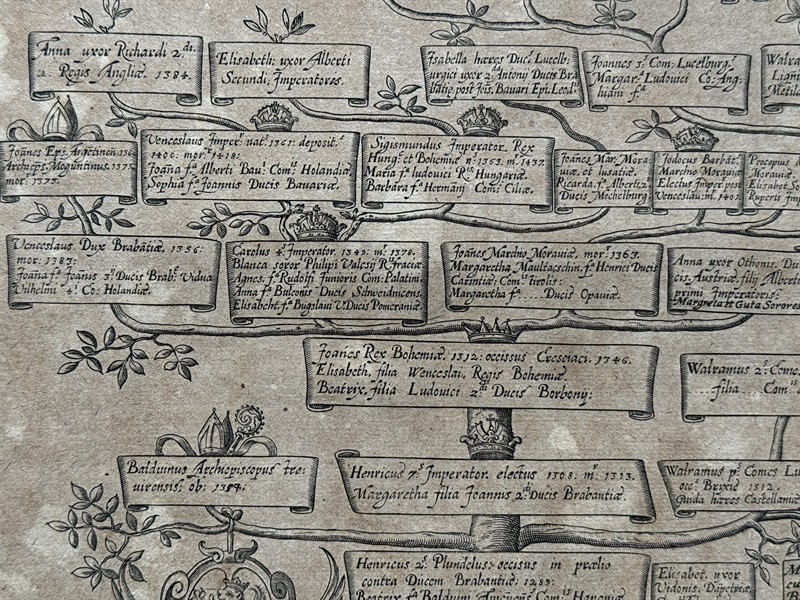 Anna uxor Richardi 2di.
Regis Angliæ 1384.
Elisabeth: uxor Alberti
Secundi; Imperatores.
Isabella hæres Duc. Lucelb:
urgici uxor 2. Antonij Ducis Bra
batiæ, post Jois, Bavari Epi. Leod.
Joannes 3s Com: Lucelburg.
Margar. Ludovici Co: Ang:
hiani fa
Walra
Lign
Metild
Joānes Eps. Argētinēn.
Archieps. Moguntinus. 1371.
mor: 1373.
Venceslaus Imper. nat. 1361: deposit.
1400: mor. 1418.
Joana fa Alberti Bau. Comis Holandiæ
Sophia fa Joannis Ducis Bavariæ.
Sigismundus Imperator. Rex
Hung. et Bohemiæ n. 1363. m. 1437.
Maria fa ludovici Ris Hungariæ
Barbara fa Hermāni Com. Ciliæ.
Joānes Mar. Mora
uiæ, et lusatiæ.
Ricarda. fa Alberti. 2.
Ducis Michelburg.
Jodocus Barbāt.
Marchio Moraviæ
Electus Imper. post
Venceslau. m. 1401.
Procopius
Moraviæ
Elisabet. So
Ruperti Imp
Venceslaus. Dux Brabātiæ. 1356:
mor: 1383:
Joāna fa Joānis 3s Ducis Brab. Vidua
Vilhelmi 4t Co: Holandiæ.
Carolus 4s Imperator. 1345: m. 1378.
Blanca soror Philipi Valesij Ris Fraciæ
Agnes. fa Rudolfi Junioris Com: Palatini
Anna fa Bulconis Ducis Schweidnicens.
Elisabeht. fa Bugslai V. Ducis Pomeraniæ.
Joānes Marchio Moraviæ, mor. 1363.
Margaretha Maultacschin. fa Henrici Ducis
Carintiæ: Comis tirolis:
Margaretha fa ..... Ducis Opaviæ.
Anna uxor Othonis. Du
cis. Austriæ. filij Alberti
primi Imperatoris:
Margreta et Guta Sorores
Joānes Rex Bohemiæ. 1312: occisus Cresciaci. 1346.
Elisabeth. filia Wenceslai. Regis Bohemiæ.
Beatrix. filia Ludovici 2di Ducis Borbonij:
Walramus 2s Comes
.... filia ..... Comis
Balduinus Archiopiscopus tre-
virensis: ob: 1354:
Henricus 7s Imperator. electus 1308: m. 1313.
Margaretha filia Joannis 2di Ducis Brabantiæ.
Walramus ps Comes Lu
occ. Brixiæ 1312.
Guida hæres Castellaniæ
Henricus 2s Plundelus: occisus in prælio
contra Ducem Brabantiæ: 1289:
Beatrix fa Balduini Comis Hanoniæ
Elisabet. uxor
Vidonis.